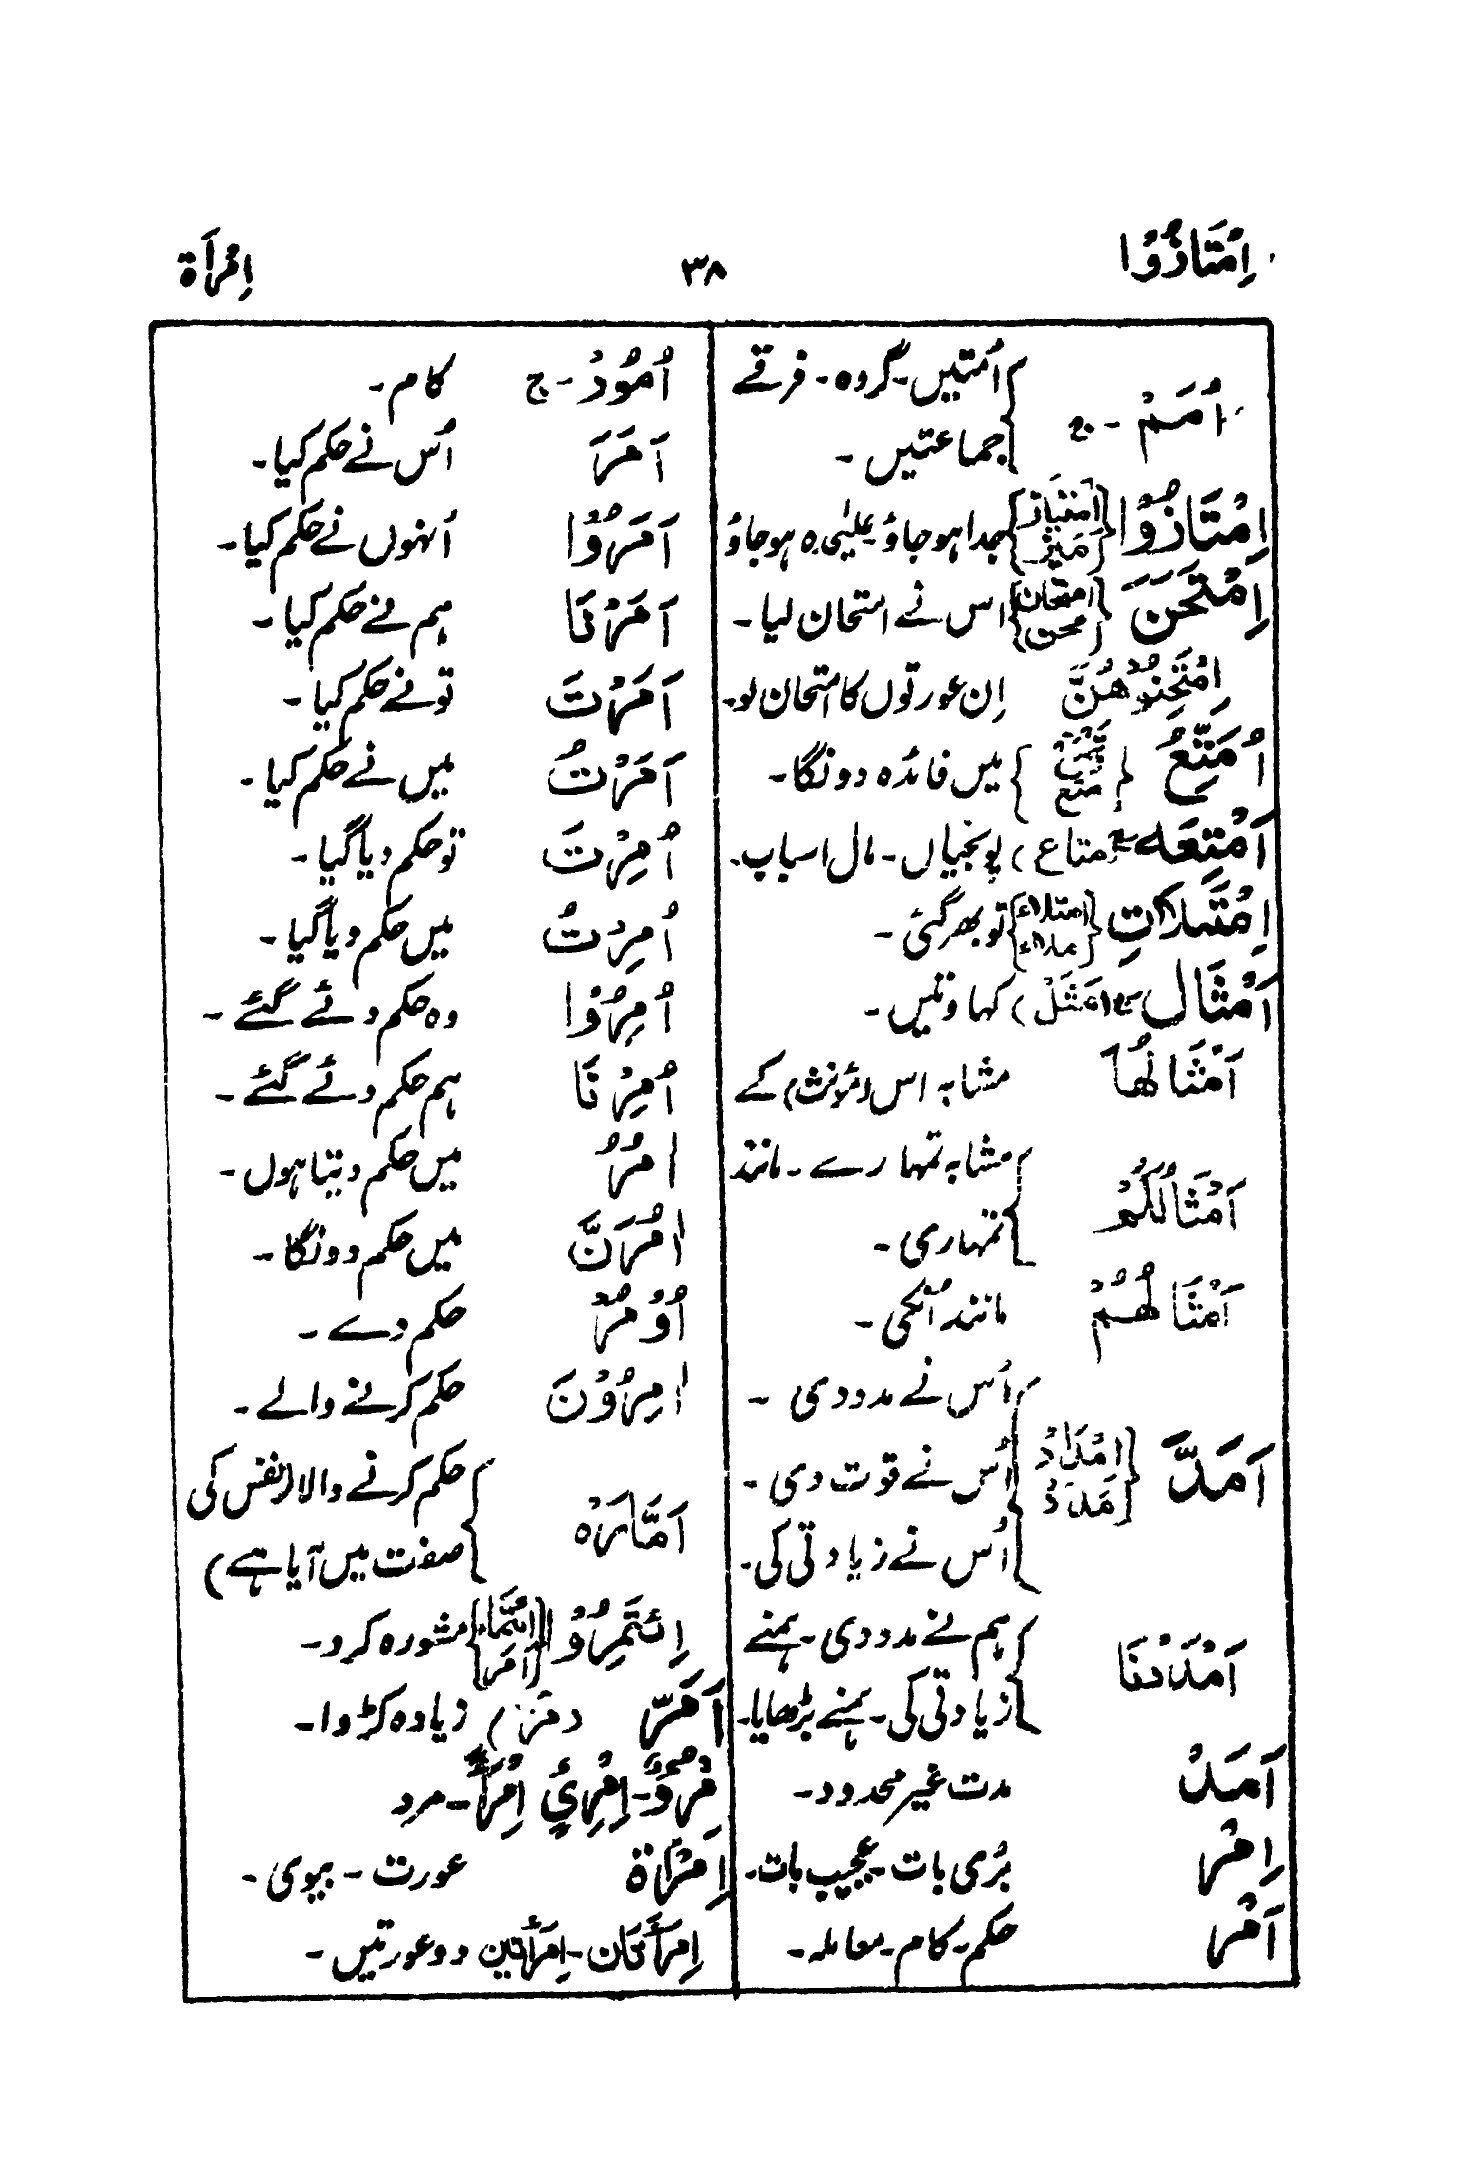 اِمْتَازُوْا ۳۸ اِمْرَأَة
اُمَمْ - ج اُمتیں - گروہ - فرقے
جماعتیں -
اِمْتَازُوْا {امتیاز / مَیْز} جدا ہو جاؤ - علیٰحدہ ہو جاؤ
اِمْتَحَنَ {امتحان / محن} اس نے امتحان لیا -
اِمْتَحِنُوْهُنَّ اِن عورتوں کا امتحان لو -
اُمَتِّعُ میں فائدہ دونگا -
اَمْتِعَه ج (متاع) پونجیاں - مال اسباب -
اِمْتَلَاْتِ {امتلاء / ملاء} تو بھر گئی -
اَمْثَال ج (مَثَلْ) کہاوتیں -
اَمْثَالُهَا مشابہ اس (مؤنث) کے
اَمْثَالُكُمْ مشابہ تمہارے - مانند
تمہاری -
اَمْثَالُهُمْ مانند اُنکی -
اَمَدَّ {اِمْدَادْ / مَدَدْ} اُس نے مدد دی -
اُس نے قوت دی -
اُس نے زیادتی کی -
اَمْدَدْنَا ہم نے مدد دی - ہمنے
زیادتی کی - ہمنے بڑھایا -
اَمَدْ مدت غیر محدود -
اِمْر بُری بات - عجیب بات -
اَمْر حکم - کام - معاملہ -
اُمُوْر - ج کام -
اَمَرَ اُس نے حکم کیا -
اَمَرُوْا اُنہوں نے حکم کیا -
اَمَرْنَا ہم نے حکم کیا -
اَمَرْتَ تو نے حکم کیا -
اَمَرْتُ میں نے حکم کیا -
اُمِرْتَ تو حکم دیا گیا -
اُمِرْتُ میں حکم دیا گیا -
اُمِرُوْا وہ حکم دئے گئے -
اُمِرْنَا ہم حکم دئے گئے -
اٰمُرُ میں حکم دیتا ہوں -
اٰمُرَنَّ میں حکم دونگا -
اُوْمُرْ حکم دے -
اٰمِرُوْنَ حکم کرنے والے -
اَمَّارَه حکم کرنے والا (نفس کی
صفت میں آیا ہے)
اِئتَمِرُوْا مشورہ کرو -
اَمَرّ زیادہ کڑوا -
اِمْرِئٍ اِمْرَأً - مرد
اِمْرَأَة عورت - بیوی -
اِمْرَأَتَان - اِمْرَأَتَین دو عورتیں -